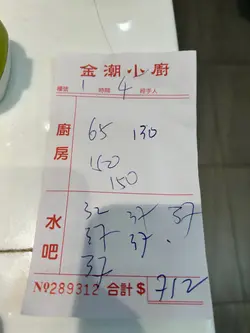 金潮小廚
檯號 1 時間 4 經手人
廚房
65 130
150
150
水吧
32 37 37
37 37.
37
№289312 合計$ 712